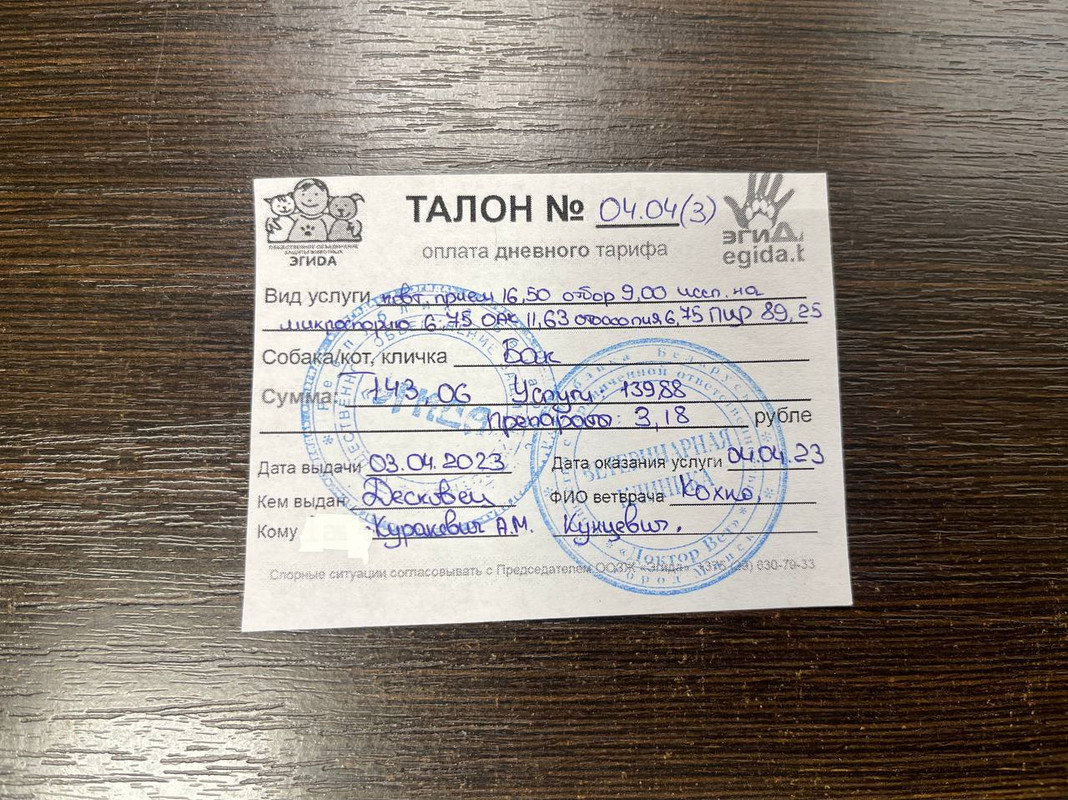 ОБЩЕСТВЕННОЕ ОБЪЕДИНЕНИЕ
ЗАЩИТЫ ЖИВОТНЫХ
ЭГИДА
ТАЛОН № 04.04(3)
оплата дневного тарифа
эгид
egida.b
Вид услуги повт. прием 16,50 отбор 9,00 иссл. на
микроспорию 6,75 ОАК 11,63 отоскопия 6,75 ПЦР 89,25
Собака/кот, кличка Бак
Сумма: 143,06 Услуги: 139 88
Препараты: 3,18 рубле
Дата выдачи 03.04.2023 Дата оказания услуги 04.04.23
Кем выдан Десковец ФИО ветврача Кохно,
Кому Куракевич А.М. Кунцевич.
Спорные ситуации согласовывать с Председателем ООЗЖ «Эгида» 630-79-33
ЭГИДА
ВЕТЕРИНАРНАЯ
КЛИНИКА
«Доктор Вет»
город Минск